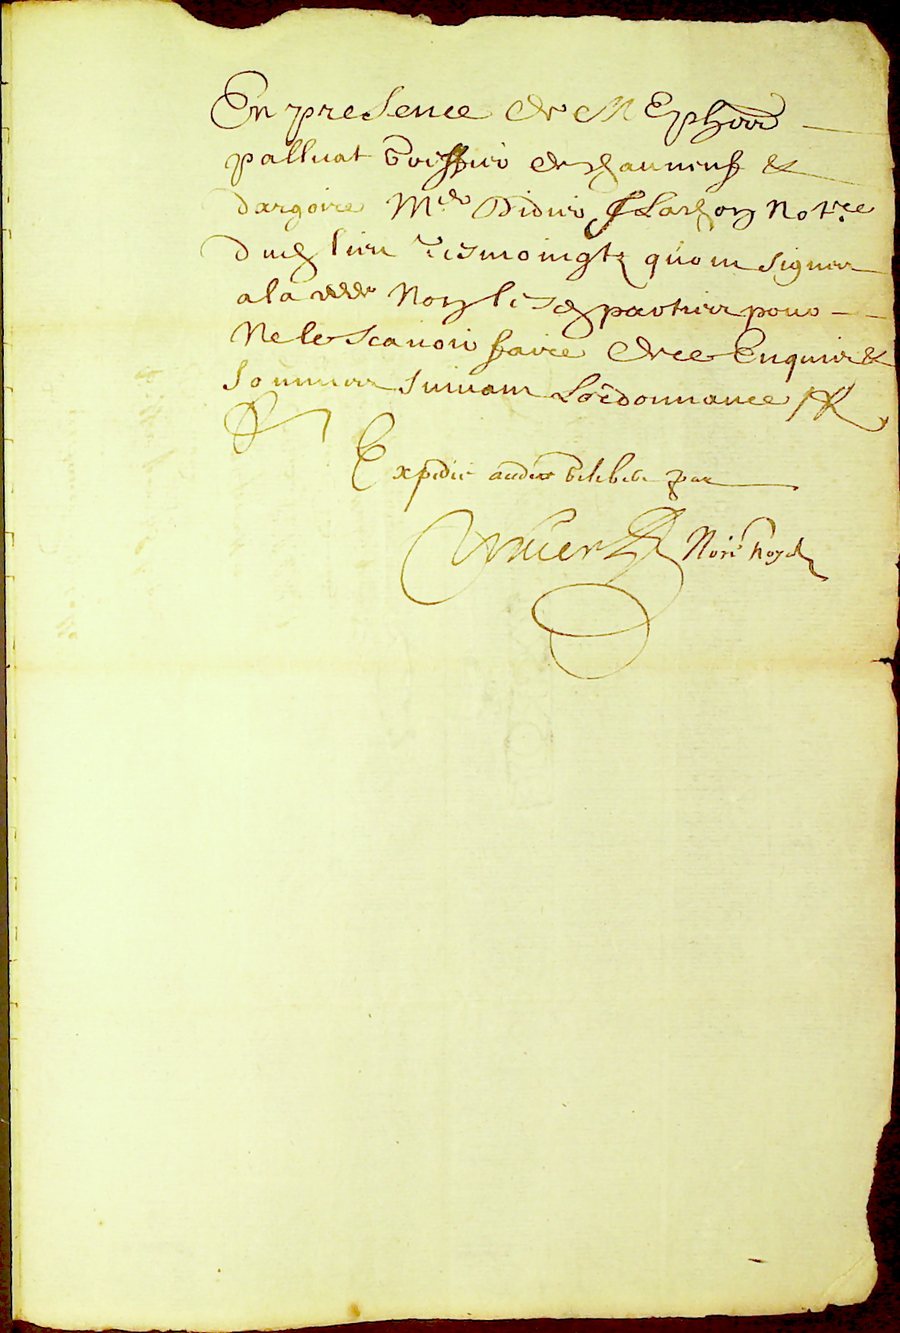 En presence de M Ephoir
palluat Greffier de chauneuf &
dargoire Me Didier Flachon Notre
dud lieu Tesmoingtz quont Signes
a la Non lesd parties pour
Ne le Scavoir faire de ce Enquis &
Sommes Suivant Lordonnance
Expedie par
Nore Royal